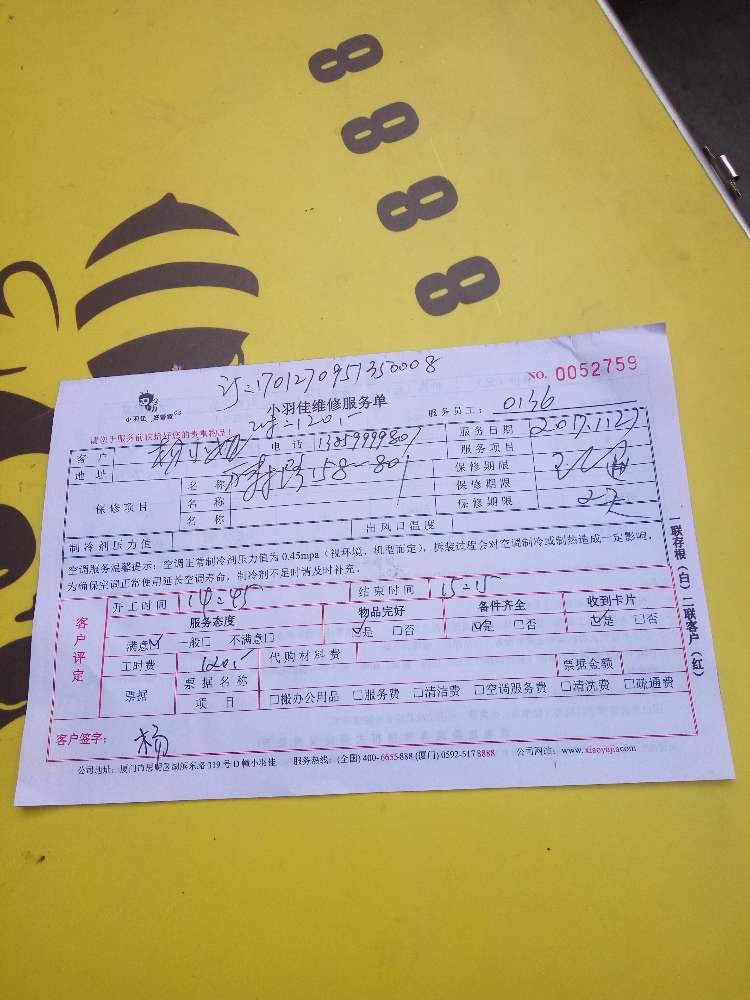 8888
订=1701270957350008
NO. 0052759
小羽佳 好管家
小羽佳维修服务单
请您于服务前保管好您的贵重物品!
=120.-
服务员工: 0136
客户 电话
服务日期 2017.1.27
地址 158-801
服务项目
保修项目 名称 保修期限
名称 保修期限
名称 保修期限
制冷剂压力值 出风口温度
空调服务温馨提示:空调正常制冷剂压力值为0.45mpa(视环境、机型而定),拆装过程会对空调制冷或制热造成一定影响,
为确保空调正常使用延长空调寿命,制冷剂不足时请及时补充。
客户评定
开工时间 14=45 结束时间 15=15
服务态度 物品完好 备件齐全 收到卡片
满意☑ 一般□ 不满意□ ☑是 □否 ☑是 □否 ☑是 □否
工时费 120.- 代购材料费
票据 票据名称 票据金额
项目 □搬办公用品 □服务费 □清洁费 □空调服务费 □清洗费 □疏通费
客户签字: 杨
公司地址:厦门市思明区湖滨东路319号D幢小羽佳 服务热线:(全国)400-6655-888(厦门)0592-5178888 公司网址:www.xiaoyujia.com
一联存根(白)二联客户(红)